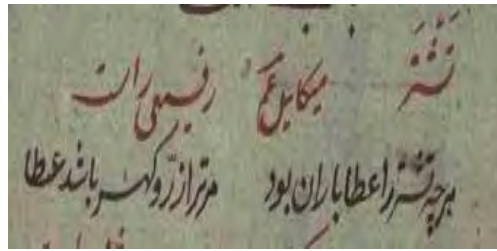 تَشْتَر میکایل عم رفیعی راست
هرچه تشتر را عطا باران بود مر ترا زرّ و گهر باشد عطا